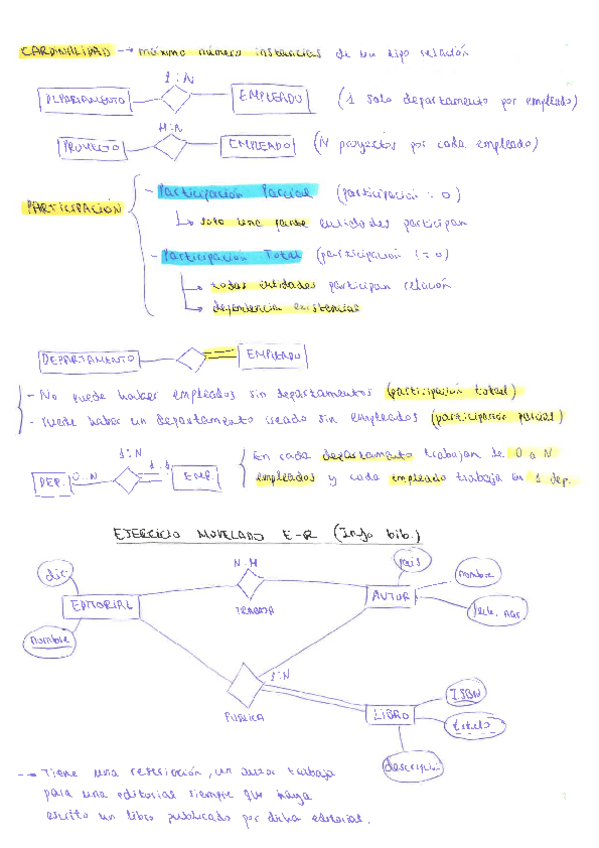 CARDINALIDAD → máximo número instancias de un tipo relación
1:N
DEPARTAMENTO EMPLEADO (1 solo departamento por empleado)
M:N
PROYECTO EMPLEADO (N proyectos por cada empleado)
PARTICIPACIÓN
- Participación Parcial (participación = 0)
↳ solo una parte entidades participan
- Participación Total (participación != 0)
→ todas entidades participan relación
→ dependencia existencias
DEPARTAMENTO EMPLEADO
- No puede haber empleados sin departamentos (participación total)
- Puede haber un departamento creado sin empleados (participación parcial)
1:N
DEP. 0..N 1..1 EMP.
En cada departamento trabajan de 0 a N
empleados y cada empleado trabaja en 1 dep.
EJERCICIO MODELADO E-R (Info bib.)
dir. N:M país nombre
EDITORIAL TRABAJA AUTOR
nombre fech. nac.
1:N
PUBLICA LIBRO ISBN
título
descripción
→ Tiene una restricción, un autor trabaja
para una editorial siempre que haya
escrito un libro publicado por dicha editorial.